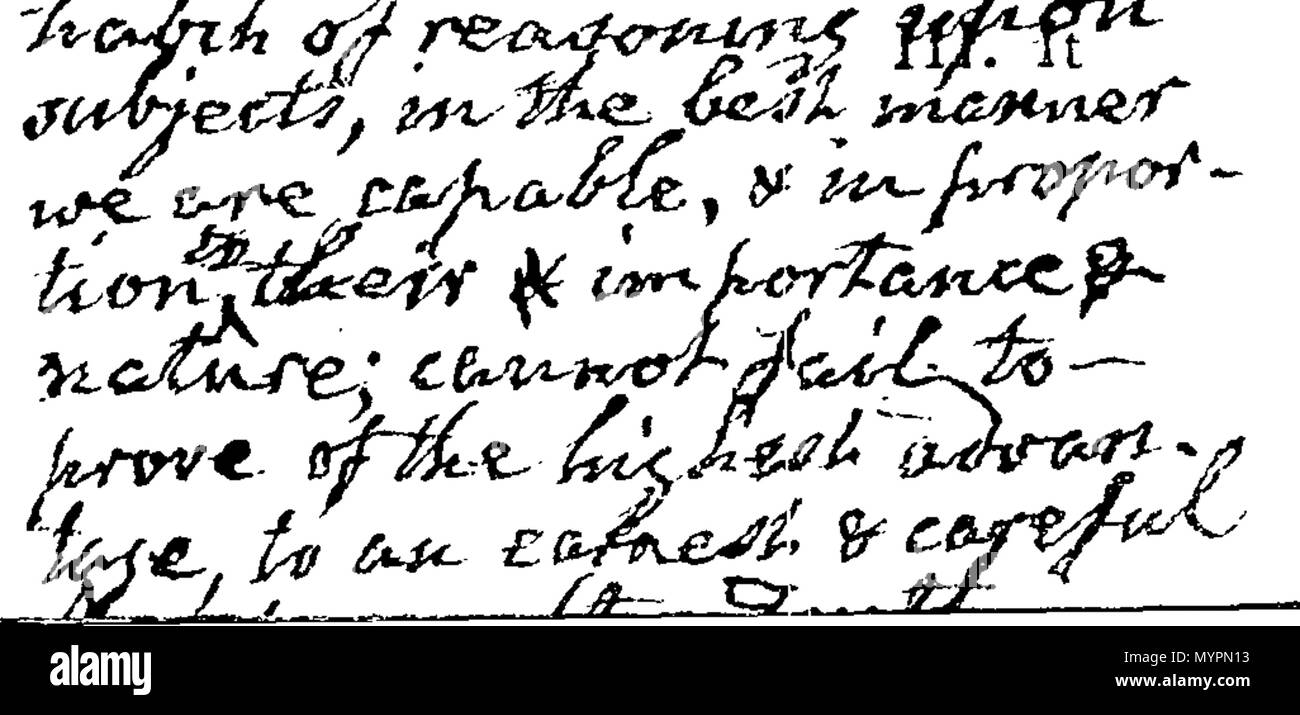 habit of reasoning upon
III. It
subjects, in the best manner
we are capable, & in propor-
tion to their & importance &
nature; cannot fail to —
prove of the highest advan-
tage, to an earnest & careful
alamy
Image ID: MYPN13
www.alamy.com